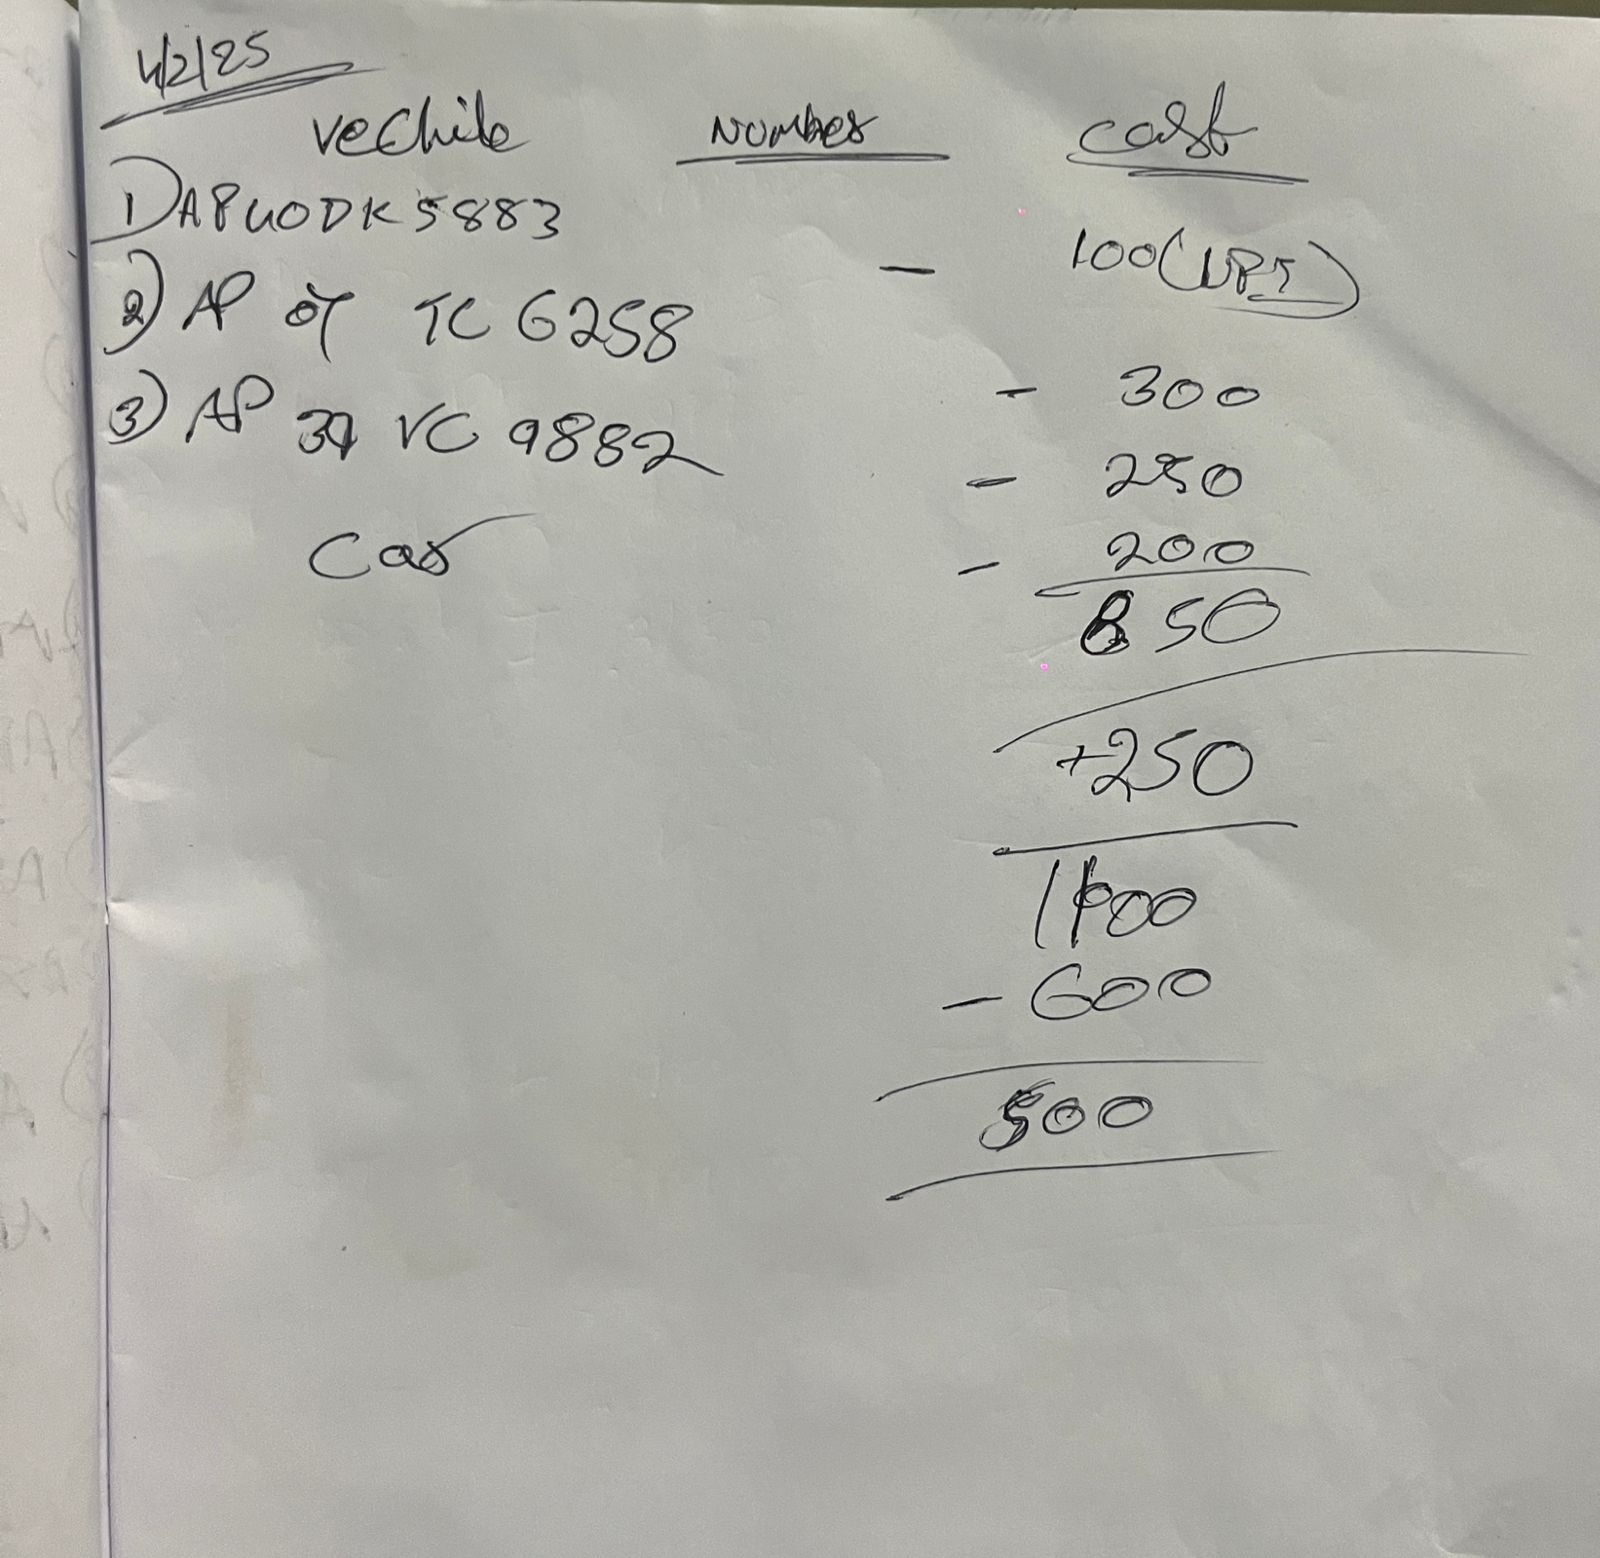 4/2/25
Vechile Number Cost
1) AP40DK5883 - 100(UPI)
2) AP 07 TC 6258 - 300
3) AP 39 VC 9882 - 250
Car - 200
850
+250
1100
- 600
500